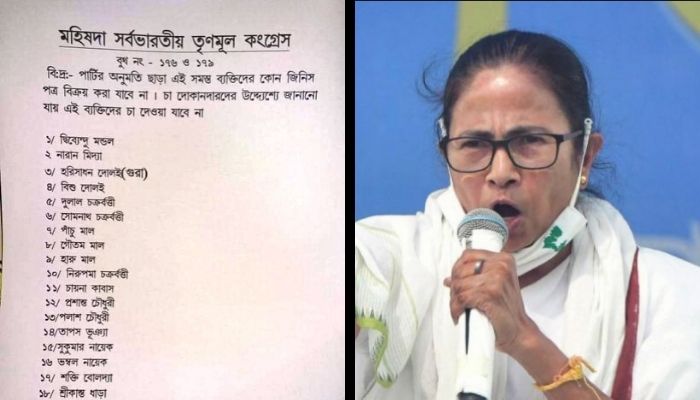 মহিষদা সর্বভারতীয় তৃণমূল কংগ্রেস
বুথ নং - ১৭৬ ও ১৭৯
বি:দ্র:- পার্টির অনুমতি ছাড়া এই সমস্ত ব্যক্তিদের কোন জিনিস
পত্র বিক্রয় করা যাবে না । চা দোকানদারদের উদ্দ্যেশ্যে জানানো
যায় এই ব্যক্তিদের চা দেওয়া যাবে না
১/ দ্বিব্যেন্দু মন্ডল
২ নারান মিদ্যা
৩/ হরিসাধন দোলই(গুরা)
৪/ বিশু দোলই
৫/ দুলাল চক্রবর্ত্তী
৬/ সোমনাথ চক্রবর্ত্তী
৭/ পাঁচু মাল
৮/ গৌতম মাল
৯/ হারু মাল
১০/ নিরুপমা চক্রবর্ত্তী
১১/ চায়না কাবাস
১২/ প্রশান্ত চৌধুরী
১৩/পলাশ চৌধুরী
১৪/তাপস ভূঞ্যা
১৫/সুকুমার নায়েক
১৬ ভম্বল নায়েক
১৭/ শক্তি বোলদ্যা
১৮/ শ্রীকান্ত ধাড়া